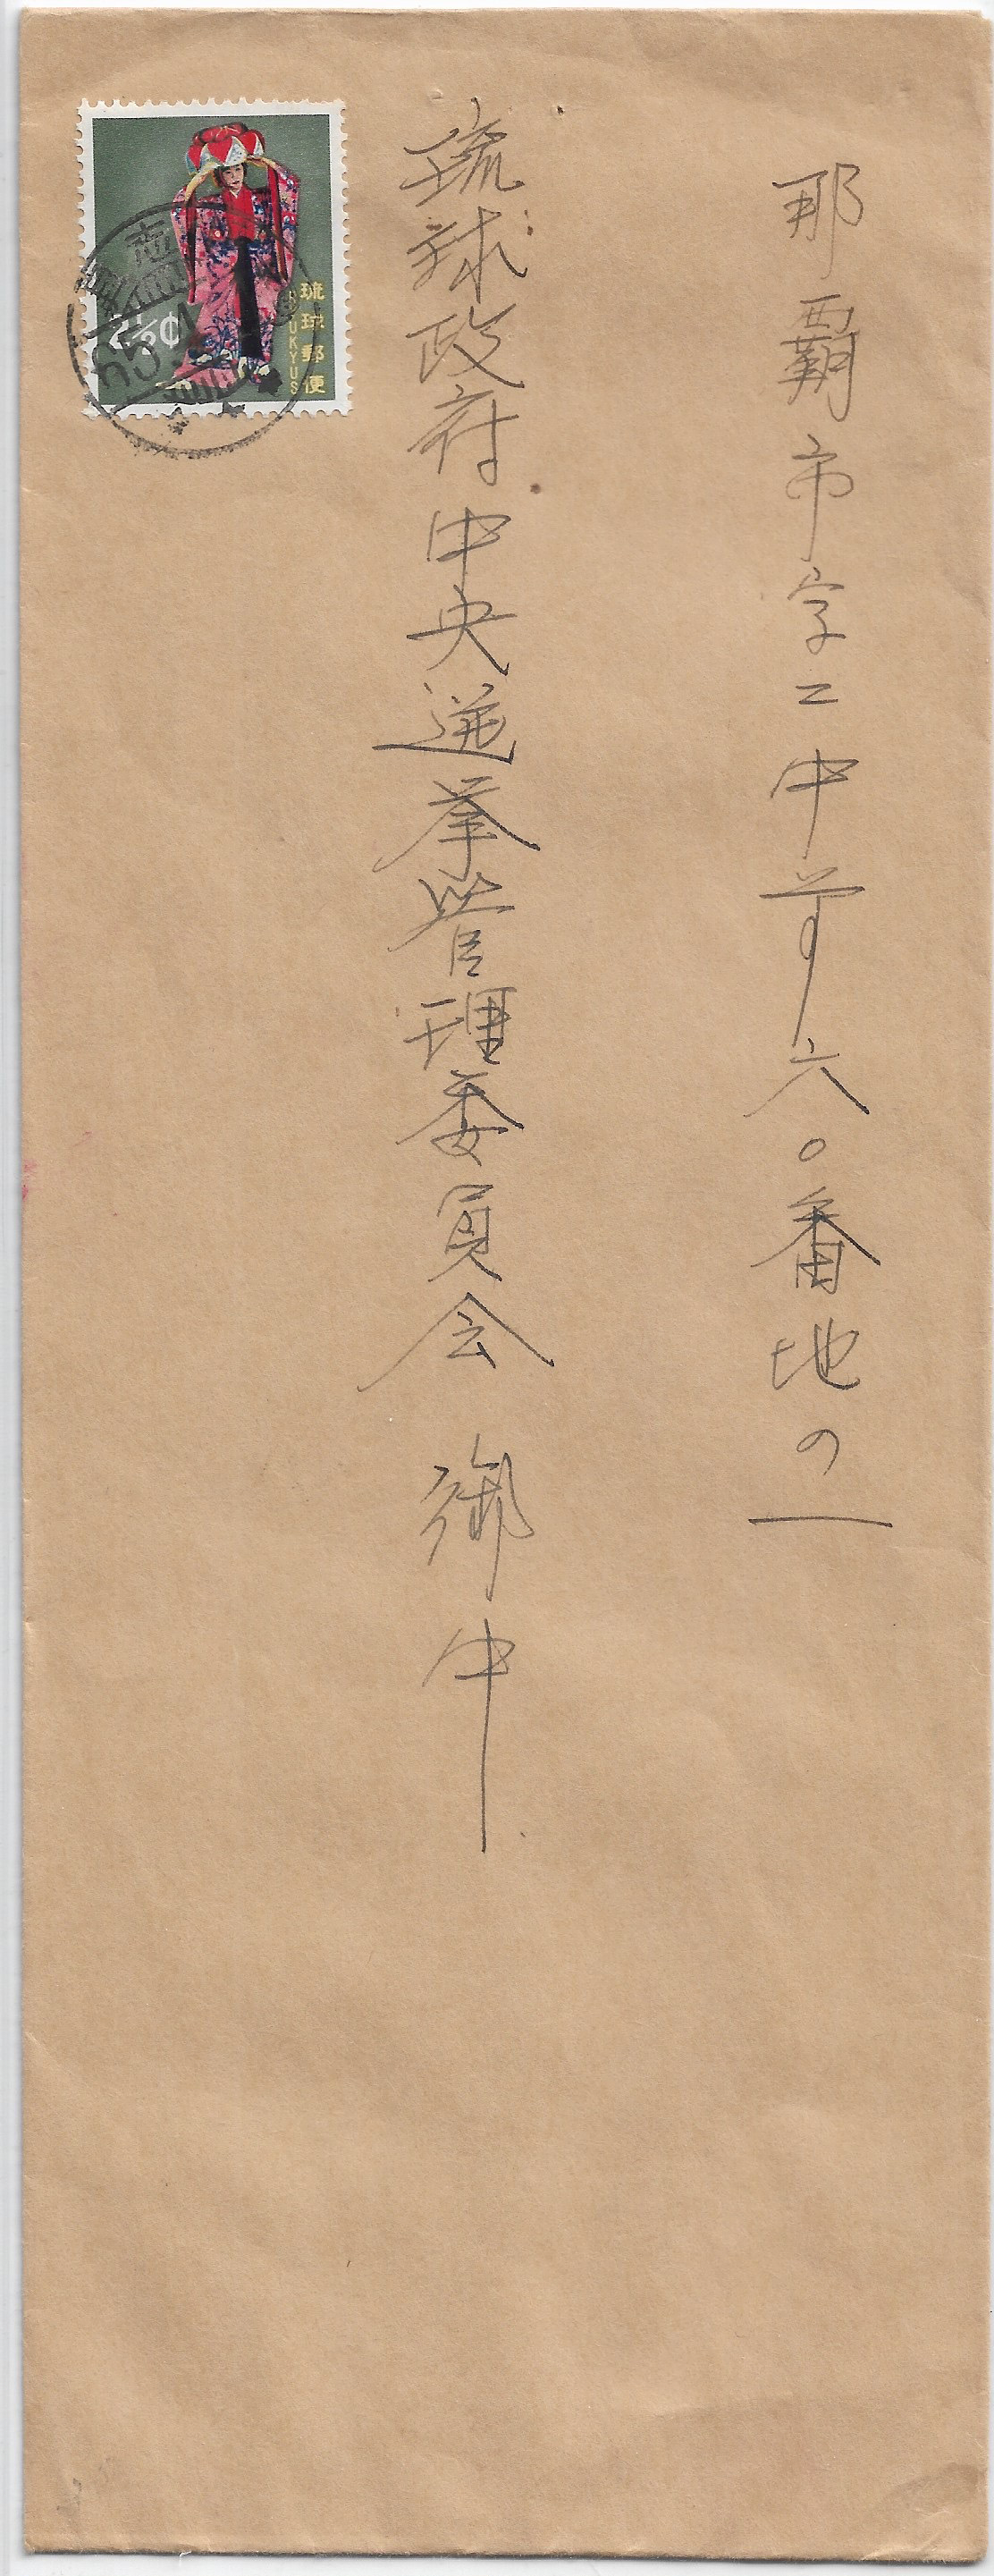 那覇市字二中前六〇番地の一
琉球政府中央選挙管理委員会 御中
琉球郵便
RYUKYUS
2½¢
65